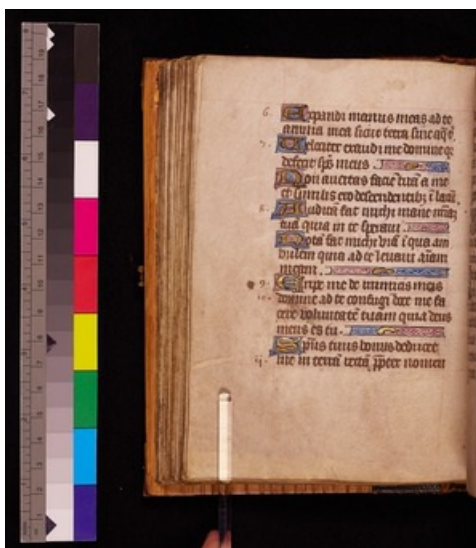 6. Expandi manus meas ad te
anima mea sicut terra sine aq̄
7. Velociter exaudi me domine
defecit sp̄s meus
Non auertas faciē tuā a me
et similis ero descendentibꝫ ī lacū
8. Auditā fac michi mane miā
tuā quia in te speraui
Notā fac michi viā ī qua am
bulem quia ad te leuaui aīam
meam
9. Eripe me de inimicis meis
10. domine ad te confugi doce me fa
cere voluntatē tuam quia deus
meus es tu
Spūs tuus bonus deducet
11. me in terrā rectā ꝓpter nomen